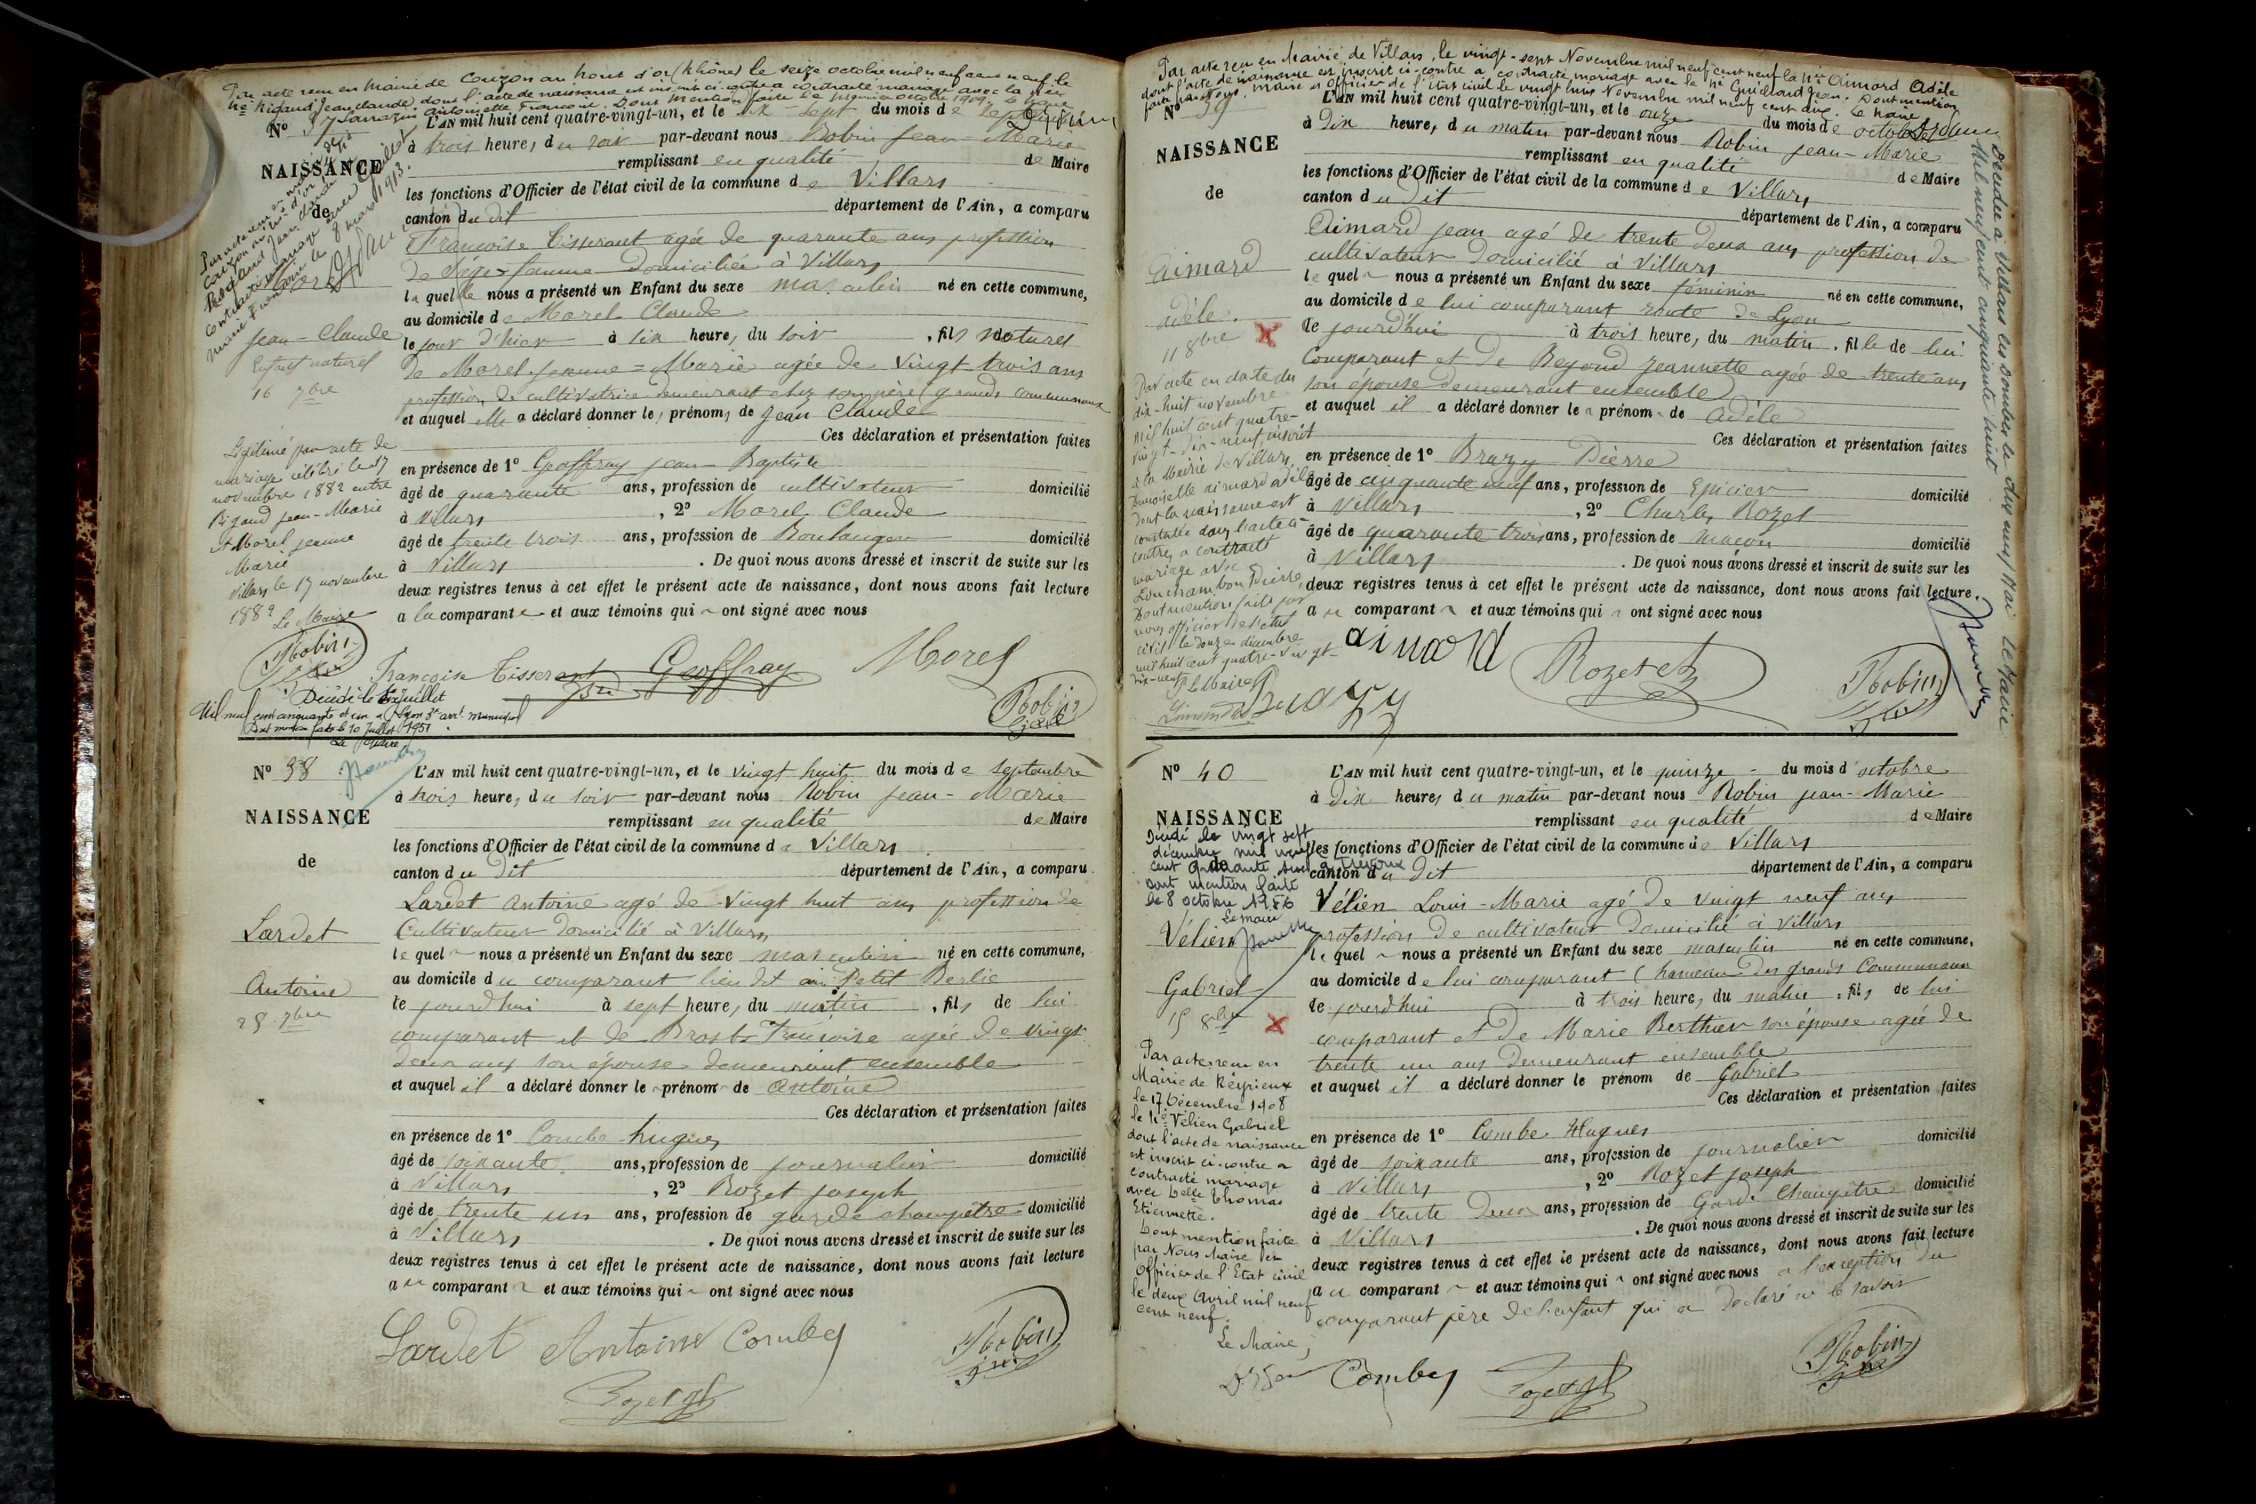 Par acte reçu en Mairie de Couzon au Mont d'or (Rhône) le seize octobre mil neuf cent neuf le
né Rigaud Jean Claude dont l'acte de naissance est inscrit ci-contre a contracté mariage avec la Dlle
Sarrazin Antoinette Françoise. Dont mention faite
Nº 37
NAISSANCE
de
Jean-Claude
Enfant naturel
16 7bre
Légitimé par acte de
mariage célébré le 17
novembre 1882 entre
Rigaud Jean-Marie
et Morel jeanne
Marie
Villars le 17 novembre
1882 Le Maire
Robin
L'AN mil huit cent quatre-vingt-un, et le dix-sept du mois de septembre
à trois heures, du soir par-devant nous Robin Jean-Marie
remplissant en qualité de Maire
les fonctions d'Officier de l'état civil de la commune de Villars
canton du dit département de l'Ain, a comparu
Françoise Tisserant agée de quarante ans profession
de Sage-femme domiciliée à Villars
laquelle nous a présenté un Enfant du sexe masculin né en cette commune,
au domicile de Morel Claude
le jour d'hier à six heure, du soir, fils naturel
de Morel Jeanne-Marie agée de vingt trois ans
profession de cultivatrice demeurant chez son père (grands communaux
et auquel elle a déclaré donner les prénoms de Jean Claude
Ces déclaration et présentation faites
en présence de 1º Geoffray Jean-Baptiste
âgé de quarante ans, profession de cultivateur domicilié
à Villars, 2º Morel Claude
âgé de trente trois ans, profession de Boulanger domicilié
à Villars. De quoi nous avons dressé et inscrit de suite sur les
deux registres tenus à cet effet le présent acte de naissance, dont nous avons fait lecture
a la comparante et aux témoins qui ont signé avec nous
Françoise Tisserant Geoffray Morel
Robin
Décédé le Juillet
Mil neuf cent cinquante et un à Lyon
Dont mention faite le 10 Juillet 1951
Le Maire
Nº 38
NAISSANCE
de
Lardet
Antoine
28 7bre
L'AN mil huit cent quatre-vingt-un, et le vingt huit du mois de septembre
à trois heure, du soir par-devant nous Robin Jean-Marie
remplissant en qualité de Maire
les fonctions d'Officier de l'état civil de la commune de Villars
canton du dit département de l'Ain, a comparu
Lardet Antoine agé de vingt huit ans profession de
Cultivateur domicilié à Villars
lequel nous a présenté un Enfant du sexe masculin né en cette commune,
au domicile du comparant lieu dit au Petit Berlie
le jourd'hui à sept heure, du matin, fils de lui
comparant et de Brosts Françoise agée de vingt
deux ans son épouse demeurant ensemble
et auquel il a déclaré donner le prénom de Antoine
Ces déclaration et présentation faites
en présence de 1º Combe hugues
âgé de soixante ans, profession de journalier domicilié
à Villars, 2º Rozet joseph
âgé de trente un ans, profession de garde champêtre domicilié
à Villars. De quoi nous avons dressé et inscrit de suite sur les
deux registres tenus à cet effet le présent acte de naissance, dont nous avons fait lecture
au comparant et aux témoins qui ont signé avec nous
Lardet Antoine Combe
Robin
Rozet
Par acte reçu en Mairie de Villars, le vingt-sept Novembre mil neuf cent neuf la née Aimard Adèle
dont l'acte de naissance est inscrit ci-contre a contracté mariage avec le né Guichard Jean. Dont mention
faite par Nous, Maire et Officier de l'Etat civil le vingt Novembre mil neuf cent dix. Le Maire
Nº 39
NAISSANCE
de
Aimard
Adèle
11 8bre
Par acte en date du
dix-huit novembre
mil huit cent quatre-
vingt-dix-neuf inscrit
à la Mairie de Villars
Demoiselle Aimard Adèle
dont la naissance est
constatée dans l'acte ci-
contre, a contracté
mariage avec
Pierre,
Dont mention faite par
nous officier de l'état
civil le douze décembre
mil huit cent quatre-vingt-
dix-neuf
Le Maire
L'AN mil huit cent quatre-vingt-un, et le onze du mois de octobre
à Dix heure, du matin par-devant nous Robin Jean-Marie
remplissant en qualité de Maire
les fonctions d'Officier de l'état civil de la commune de Villars
canton du dit département de l'Ain, a comparu
Aimard Jean agé de trente deux ans profession de
cultivateur Domicilié à Villars
lequel nous a présenté un Enfant du sexe féminin né en cette commune,
au domicile de lui comparant route de Lyon
le jourd'hui à trois heure, du matin, fille de lui
comparant et de Reynd Jeannette agée de trente ans
son épouse demeurant ensemble
et auquel il a déclaré donner le prénom de Adèle
Ces déclaration et présentation faites
en présence de 1º Brazy Pierre
âgé de cinquante neuf ans, profession de Epicier domicilié
à Villars, 2º Charles Rozet
âgé de quarante trois ans, profession de maçon domicilié
à Villars. De quoi nous avons dressé et inscrit de suite sur les
deux registres tenus à cet effet le présent acte de naissance, dont nous avons fait lecture
au comparant et aux témoins qui ont signé avec nous
aimard Rozet Robin
Brazy
Décédée à Villars les Dombes le dix neuf Mai
Mil neuf cent cinquante huit Le Maire
Nº 40
NAISSANCE
de
Décédé le vingt sept
décembre mil neuf
cent quarante
dont mention faite
le 8 octobre
Le maire
Vélien
Gabriel
15 8bre
Par acte reçu en
Mairie de Reyrieux
le 17 Décembre 1908
le né Vélien Gabriel
dont l'acte de naissance
est inscrit ci-contre a
contracté mariage
avec Delle Thomas
Etiennette.
Dont mention faite
par Nous Maire et
Officier de l'Etat civil
le deux Avril mil neuf
cent neuf.
Le Maire,
L'AN mil huit cent quatre-vingt-un, et le quinze du mois d'octobre
à Dix heures du matin par-devant nous Robin Jean-Marie
remplissant en qualité de Maire
les fonctions d'Officier de l'état civil de la commune de Villars
canton du dit département de l'Ain, a comparu
Vélien Louis-Marie agé de vingt neuf ans
profession de cultivateur Domicilié à Villars
lequel nous a présenté un Enfant du sexe masculin né en cette commune,
au domicile de lui comparant (hameau des grands Communaux
le jourd'hui à trois heure, du matin, fils de lui
comparant et de Marie Berthier son épouse agée de
trente un ans demeurant ensemble
et auquel il a déclaré donner le prénom de Gabriel
Ces déclaration et présentation faites
en présence de 1º Combe Hugues
âgé de soixante ans, profession de journalier domicilié
à Villars, 2º Rozet joseph
âgé de trente deux ans, profession de Garde Champêtre domicilié
à Villars. De quoi nous avons dressé et inscrit de suite sur les
deux registres tenus à cet effet le présent acte de naissance, dont nous avons fait lecture
au comparant et aux témoins qui ont signé avec nous a l'exception du
comparant père de l'enfant qui a déclaré ne le savoir
Combe Rozet Robin